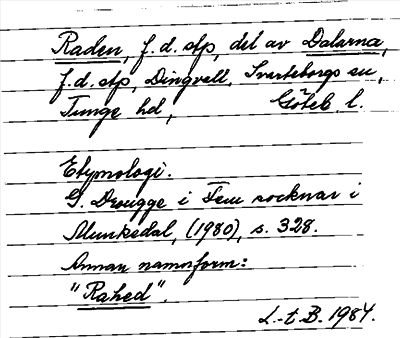 Raden, f.d. stp, del av Dalarna,
f.d. stp, Dingvall, Svarteborgs sn,
Tunge hd, Göteb. l.
Etymologi:
G. Drougge i Fem socknar i
Munkedal, (1980), s. 328.
Annan namnform:
"Rahed".
L.-t B. 1984.